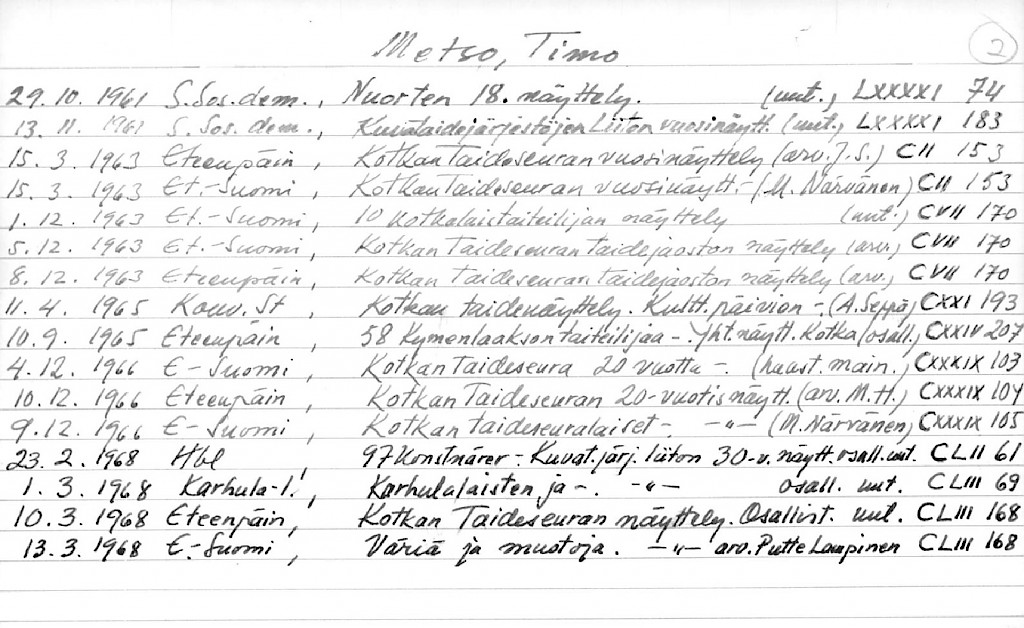 Metso, Timo 2
29.10.1961 S.Sos.dem., Nuorten 18. näyttely. (uut.) LXXXXI 74
13.11.1961 S.Sos.dem., Kuvataidejärjestöjen Liiton vuosinäytt. (uut.) LXXXXI 183
15.3.1963 Eteenpäin, Kotkan Taideseuran vuosinäyttely (arv. J.S.) CII 153
15.3.1963 Et.-Suomi, Kotkan Taideseuran vuosinäytt.- (M. Närvänen) CII 153
1.12.1963 Et.-Suomi, 10 kotkalaistaiteilijan näyttely (uut.) CVII 170
5.12.1963 Et.-Suomi, Kotkan Taideseuran taidejaoston näyttely (arv.) CVII 170
8.12.1963 Eteenpäin, Kotkan Taideseuran taidejaoston näyttely (arv.) CVII 170
11.4.1965 Kouv. St, Kotkan taidenäyttely. Kultt.päivien - (A. Seppä) CXXI 193
10.9.1965 Eteenpäin, 58 Kymenlaakson taiteilijaa -. Yht.näytt. Kotka (osall.) CXXIV 207
4.12.1966 E-Suomi, Kotkan Taideseura 20 vuotta -. (haast. main.) CXXXIX 103
10.12.1966 Eteenpäin, Kotkan Taideseuran 20-vuotisnäytt. (arv. M.H.) CXXXIX 104
9.12.1966 E-Suomi, Kotkan taideseuralaiset - -"- (M. Närvänen) CXXXIX 105
23.2.1968 Hbl, 97 Konstnärer - Kuvat.järj. liiton 30-v. näytt. osall. uut. CLII 61
1.3.1968 Karhula-l., Karhulalaisten ja -. -"- osall. uut. CLIII 69
10.3.1968 Eteenpäin, Kotkan Taideseuran näyttely. Osallist. uut. CLIII 168
13.3.1968 E.-Suomi, Väriä ja muotoja. -"- arv. Putte Lampinen CLIII 168